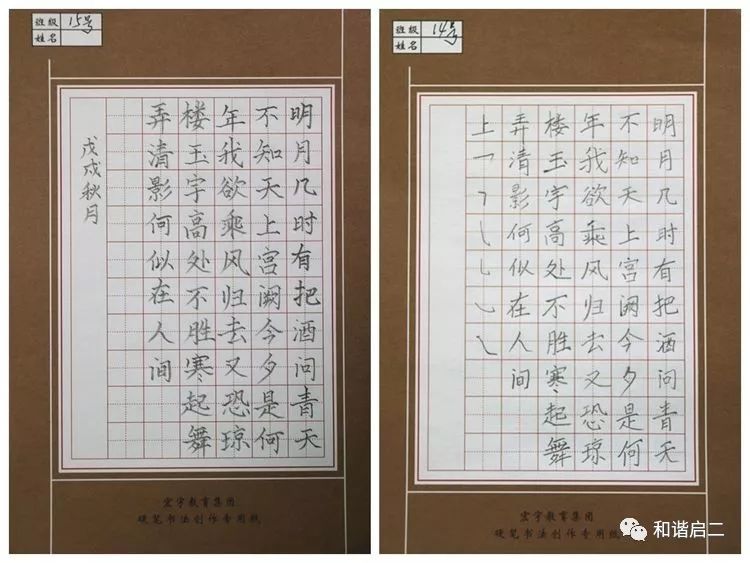 班级 15号
姓名
明月几时有把酒问青天
不知天上宫阙今夕是何
年我欲乘风归去又恐琼
楼玉宇高处不胜寒起舞
弄清影何似在人间
戊戌秋月
宏宇教育集团
硬笔书法创作专用纸
班级 14号
姓名
明月几时有把酒问青天
不知天上宫阙今夕是何
年我欲乘风归去又恐琼
楼玉宇高处不胜寒起舞
弄清影何似在人间
上
宏宇教育集团
硬笔书法创作专用纸
和谐启二